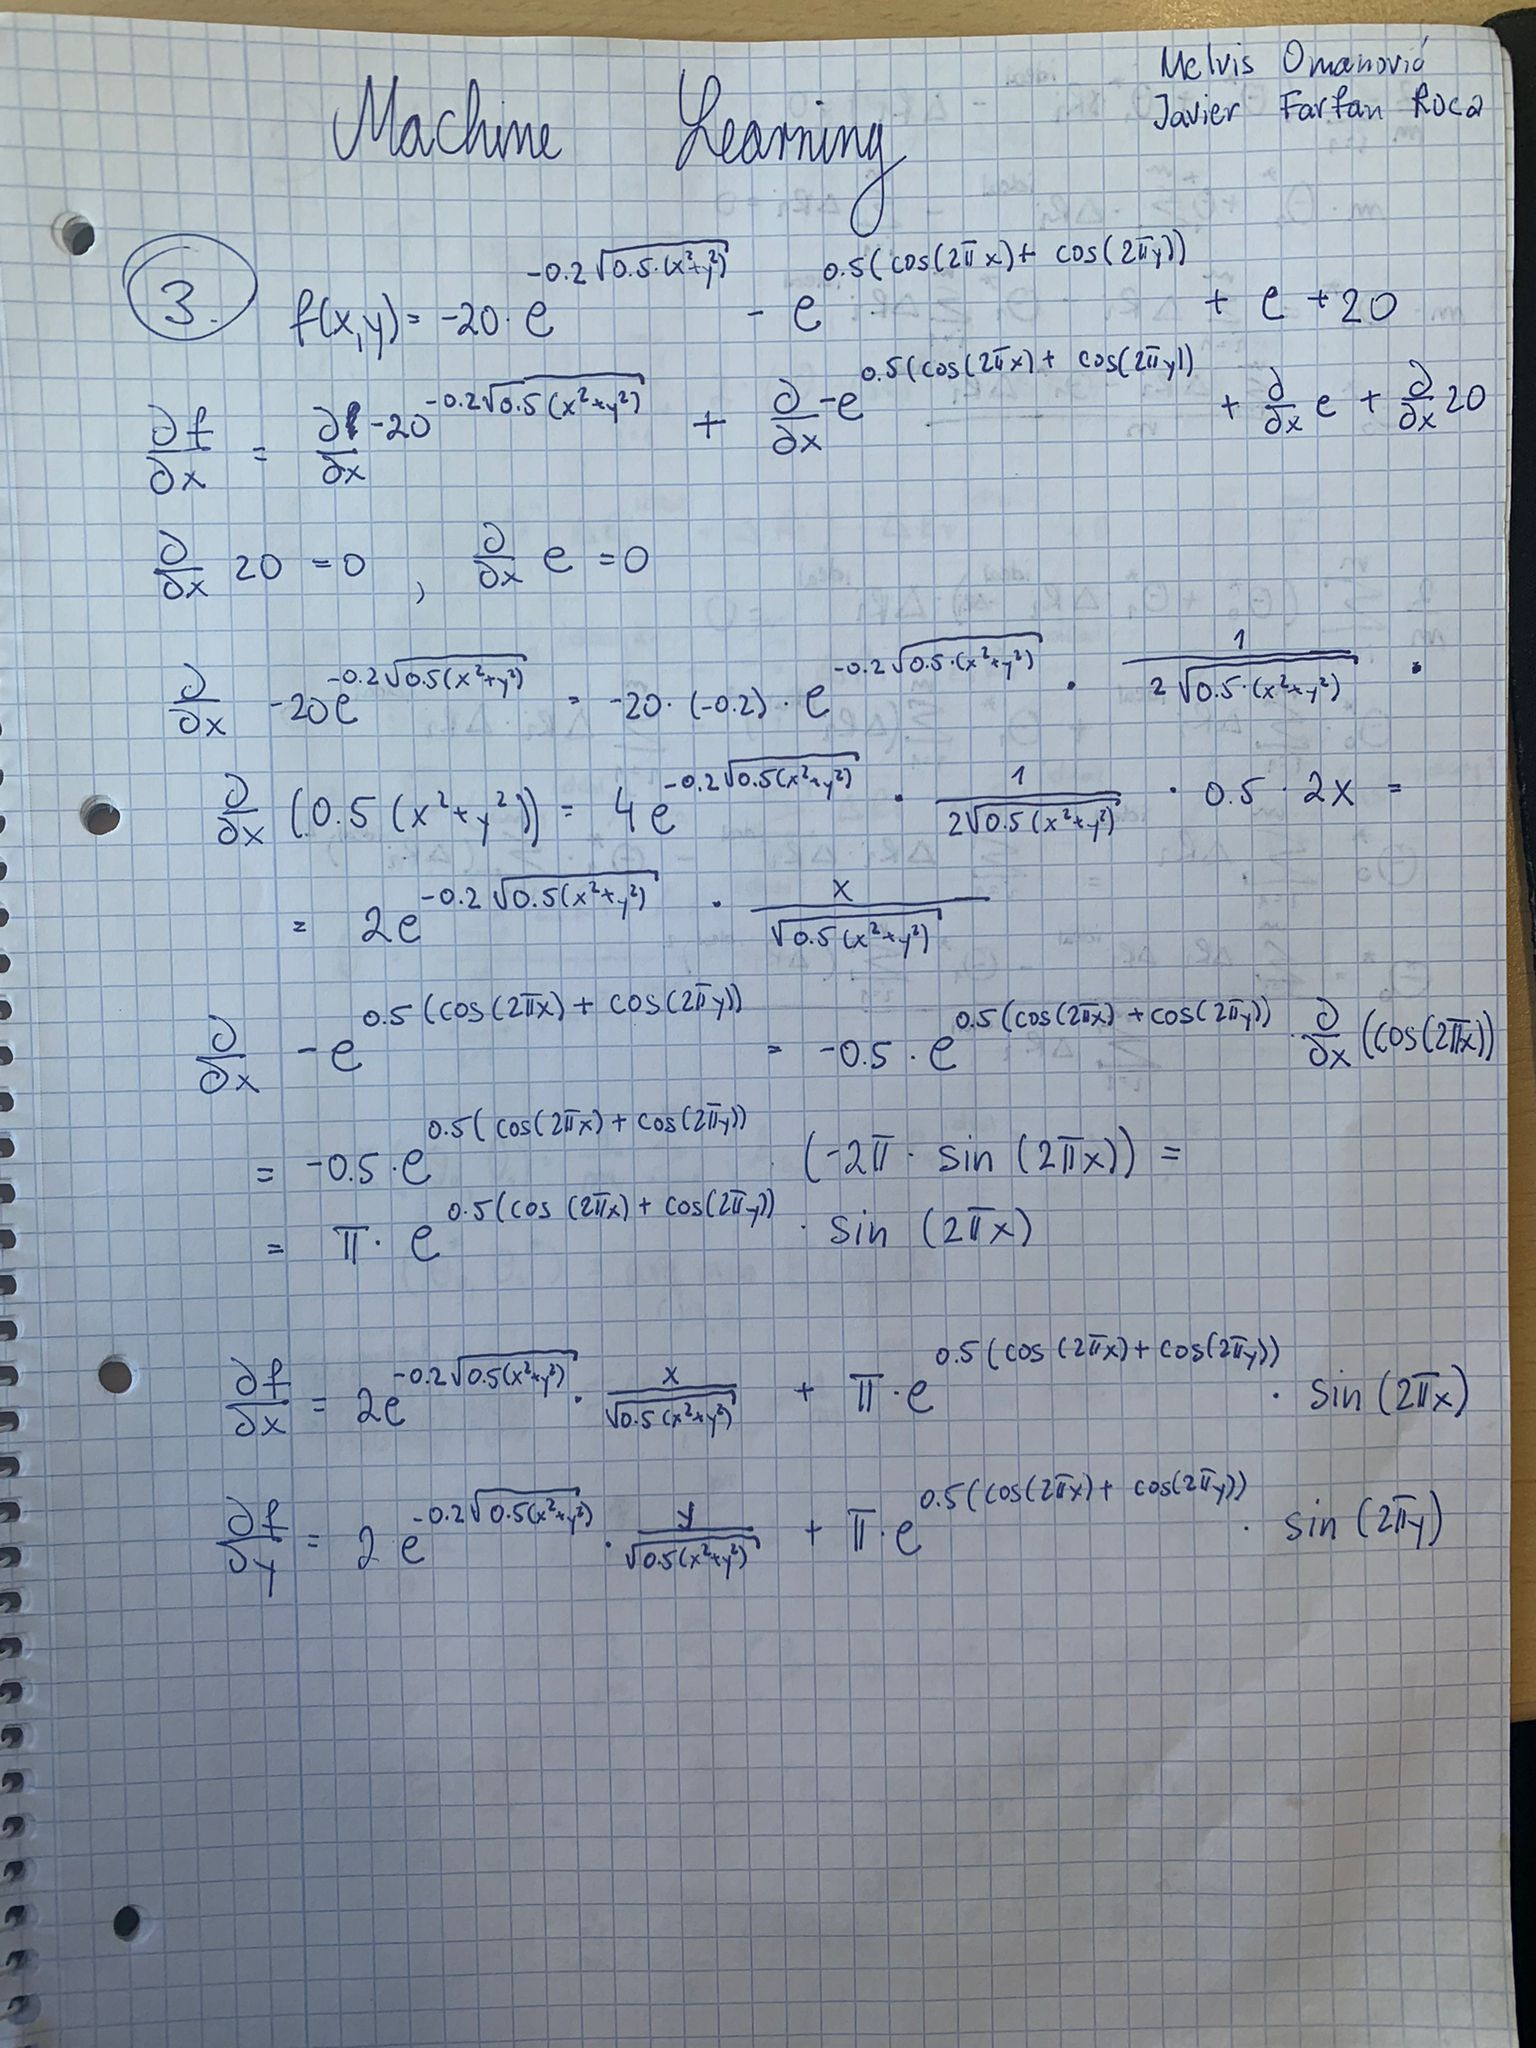 Melvis Omanović
Javier Farfan Roca
Machine Learning
3. f(x,y) = -20 · e^(-0.2√(0.5·(x²+y²))) - e^(0.5(cos(2πx) + cos(2πy))) + e + 20
∂f/∂x = ∂/∂x -20^(-0.2√(0.5(x²+y²))) + ∂/∂x -e^(0.5(cos(2πx) + cos(2πy))) + ∂/∂x e + ∂/∂x 20
∂/∂x 20 = 0 , ∂/∂x e = 0
∂/∂x -20e^(-0.2√(0.5(x²+y²))) = -20 · (-0.2) · e^(-0.2√(0.5·(x²+y²))) · 1/(2√(0.5·(x²+y²))) ·
∂/∂x (0.5(x²+y²)) = 4e^(-0.2√(0.5(x²+y²))) · 1/(2√(0.5(x²+y²))) · 0.5 · 2x =
= 2e^(-0.2√(0.5(x²+y²))) · x/√(0.5(x²+y²))
∂/∂x -e^(0.5(cos(2πx) + cos(2πy))) = -0.5 · e^(0.5(cos(2πx) + cos(2πy))) · ∂/∂x (cos(2πx))
= -0.5 · e^(0.5(cos(2πx) + cos(2πy))) (-2π · sin(2πx)) =
= π · e^(0.5(cos(2πx) + cos(2πy))) · sin(2πx)
∂f/∂x = 2e^(-0.2√(0.5(x²+y²))) · x/√(0.5(x²+y²)) + π · e^(0.5(cos(2πx) + cos(2πy))) · sin(2πx)
∂f/∂y = 2e^(-0.2√(0.5(x²+y²))) · y/√(0.5(x²+y²)) + π · e^(0.5(cos(2πx) + cos(2πy))) · sin(2πy)